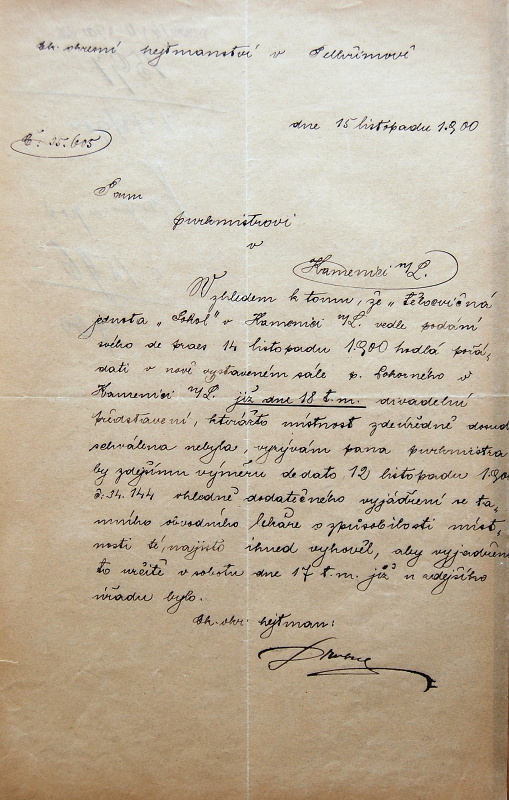 Ck. okresní hejtmanství v Pelhřimově
dne 15 listopadu 1900
Č. 35.605
Panu
purkmistrovi
v
Kamenici n/L.
Vzhledem k tomu, že „tělocvičná
jednota „Sokol" v Kamenici n/L. vedle podání
svého de praes 14 listopadu 1900 hodlá pořá-
dati v nově vystaveném sále p. v
Kamenici n/L. již dne 18 t.m. divadelní
představení, kterážto místnost zdeúředně dosud
schválena nebyla, vyzývám pana purkmistra
by zdejšímu výměru de dato 12 listopadu 1900
č. 34.144 ohledně dodatečného vyjádření se ta-
mního obvodního lékaře o způsobilosti míst-
nosti té, najisto ihned vyhověl, aby vyjádření
to určitě v sobotu dne 17 t.m. již u zdejšího
úřadu bylo.
Ck. okr. hejtman: